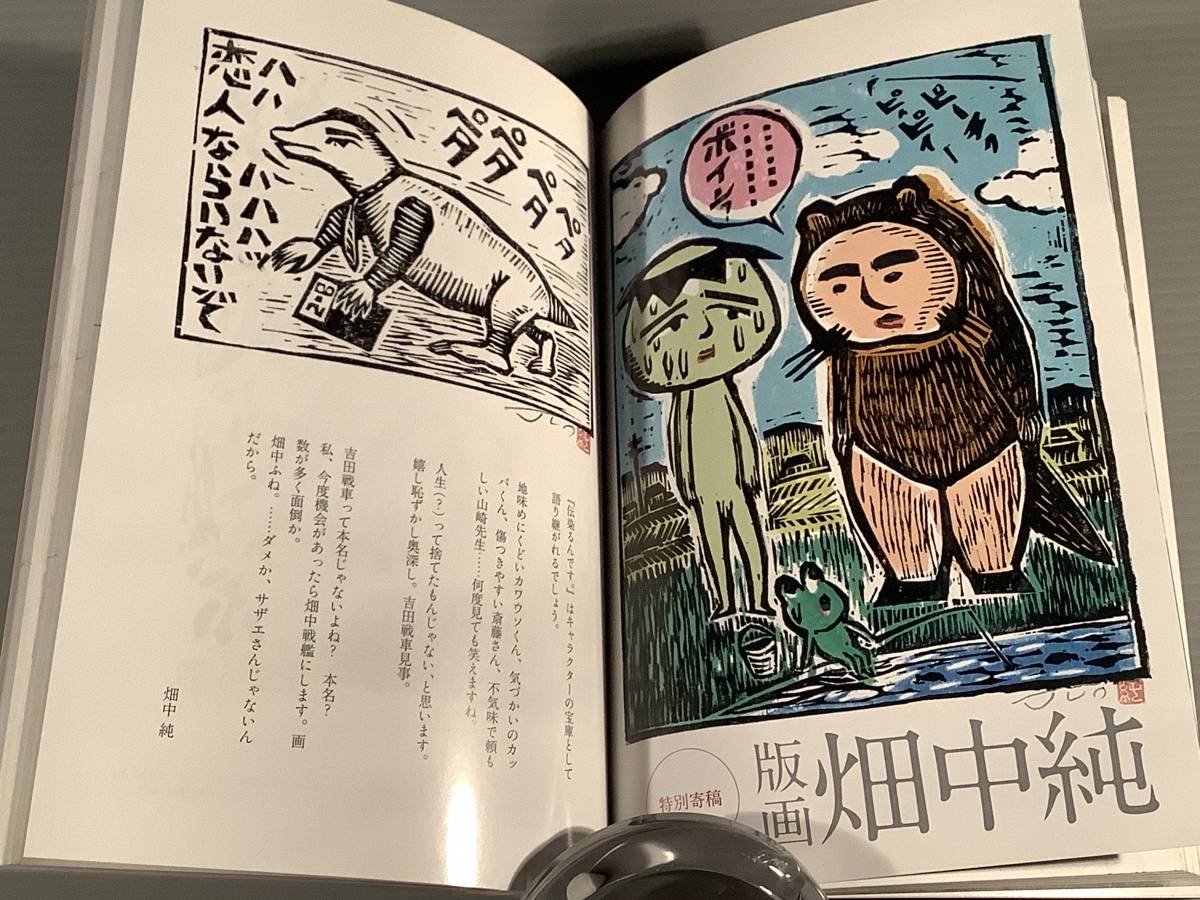 ボイン
版画
畑中純
特別寄稿
ペタ
ペタ
ペタ
ペタ
ハハ ハハハッ
恋人ならいないぞ
2-8
『伝染るんです。』はキャラクターの宝庫として
語り継がれるでしょう。
地味めにくどいカワウソくん、気づかいのカッ
パくん、傷つきやすい斎藤さん、不気味で頼も
しい山崎先生……何度見ても笑えますね。
人生(?)って捨てたもんじゃない、と思います。
嬉し恥ずかし奥深し。吉田戦車見事。
吉田戦車って本名じゃないよね? 本名?
私、今度機会があったら畑中戦艦にします。画
数が多く面倒か。
畑中ふね。……ダメか、サザエさんじゃないん
だから。
畑中 純